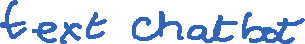 text chatbot